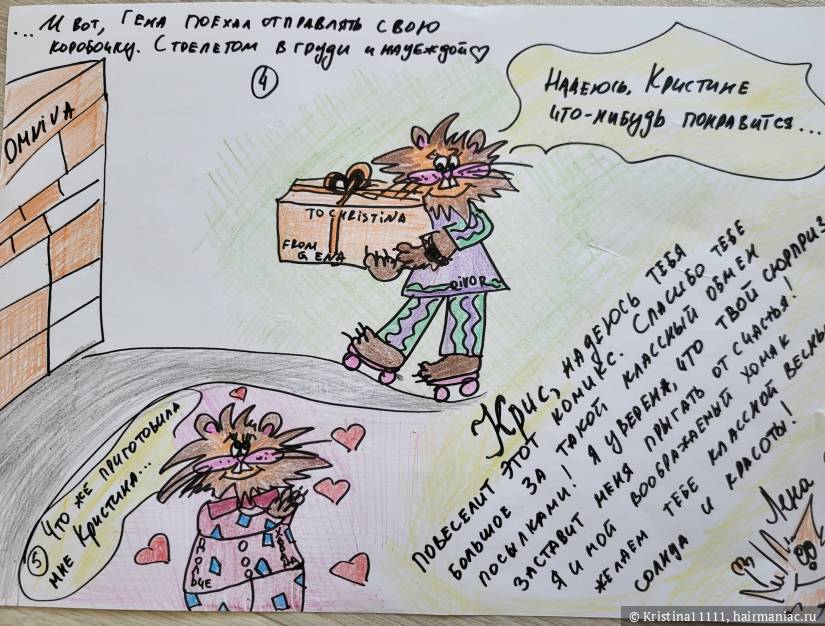 ...И вот, Гена поехал отправлять свою
коробочку. С трепетом в груди и надеждой♡
4
OMNIVA
Надеюсь, Кристине
что-нибудь понравится...
TO CHRISTINA
FROM
GENA
DIVOR
Крис, надеюсь тебя
повеселит этот комикс. Спасибо тебе
большое за такой классный обмен
посылками! Я уверена, что твой сюрприз
заставит меня прыгать от счастья!
Я и мой воображаемый хомяк
желаем тебе классной весны,
солнца и красоты!
Лена
5 Что же приготовила
мне Кристина...
© Kristina11111, hairmaniac.ru